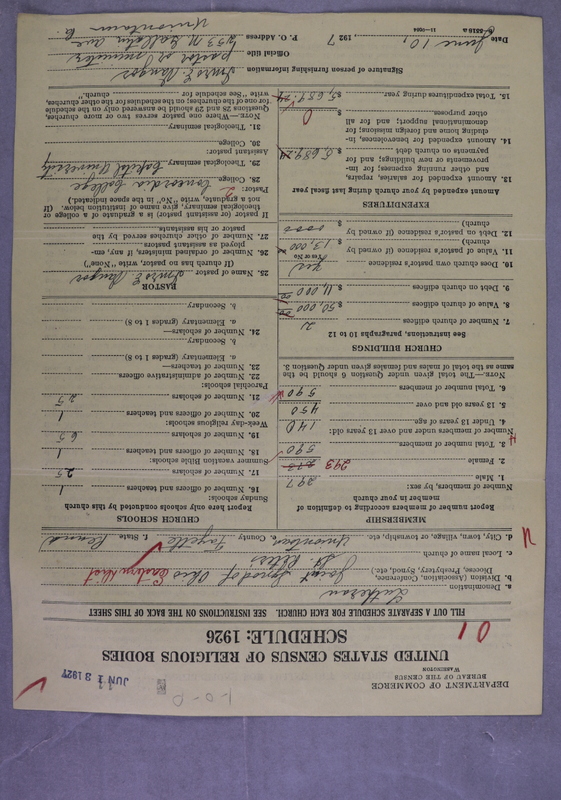 DEPARTMENT OF COMMERCE
BUREAU OF THE CENSUS
WASHINGTON
JUN 13 1927
1-0-0
UNITED STATES CENSUS OF RELIGIOUS BODIES
SCHEDULE: 1926
01
FILL OUT A SEPARATE SCHEDULE FOR EACH CHURCH. SEE INSTRUCTIONS ON THE BACK OF THIS SHEET
a. Denomination Lutheran
b. Division (Association, Conference, Diocese, Presbytery, Synod, etc.) Joint Synod of Ohio Eastern Dist
c. Local name of church St. Peters
d. City, town, village, or township, etc. Uniontown County Fayette f. State Penna
MEMBERSHIP
Report number of members according to definition of member in your church
Number of members, by sex:
1. Male 297
2. Female 293
3. Total number of members 590
Number of members under and over 13 years old:
4. Under 13 years of age 140
5. 13 years old and over 450
6. Total number of members 590
NOTE.—The total given under Question 6 should be the same as the total of males and females given under Question 3.
CHURCH BUILDINGS
See instructions, paragraphs 10 to 12
7. Number of church edifices 2
8. Value of church edifices $ 50,000 00
9. Debt on church edifices $ 11,000 00
10. Does church own pastor's residence yes
(Yes or No)
11. Value of pastor's residence (if owned by church) $ 13,000
12. Debt on pastor's residence (if owned by church) $
EXPENDITURES
Amount expended by your church during last fiscal year
13. Amount expended for salaries, repairs, and other running expenses; for improvements or new buildings; and for payments on church debt $ 5,689.24
14. Amount expended for benevolences, including home and foreign missions; for denominational support; and for all other purposes $ 0
15. Total expenditures during year $ 5,689.24
CHURCH SCHOOLS
Report here only schools conducted by this church
Sunday schools:
16. Number of officers and teachers 1
17. Number of scholars 25
Summer vacation Bible schools:
18. Number of officers and teachers 1
19. Number of scholars 65
Week-day religious schools:
20. Number of officers and teachers 1
21. Number of scholars 25
Parochial schools:
22. Number of administrative officers
23. Number of teachers—
a. Elementary (grades 1 to 8)
b. Secondary
24. Number of scholars—
a. Elementary (grades 1 to 8)
b. Secondary
PASTOR
25. Name of pastor
(If church has no pastor, write "None")
26. Number of ordained ministers, if any, employed as assistant pastors
27. Number of other churches served by the pastor or his assistants
If pastor (or assistant pastor) is a graduate of a college or theological seminary, give name of institution below. (If not a graduate, write "No" in the space indicated.)
Pastor:
28. College Concordia College
29. Theological seminary Capital University
Assistant pastor:
30. College
31. Theological seminary
NOTE.—Where one pastor serves two or more churches, Questions 28 and 29 should be answered only on the schedule for one of the churches; on the schedules for the other churches, write "See schedule for church."
Signature of person furnishing information
Official title pastor
P. O. Address 253 N Gallatin Ave
Uniontown Pa.
Date June 10, 1927